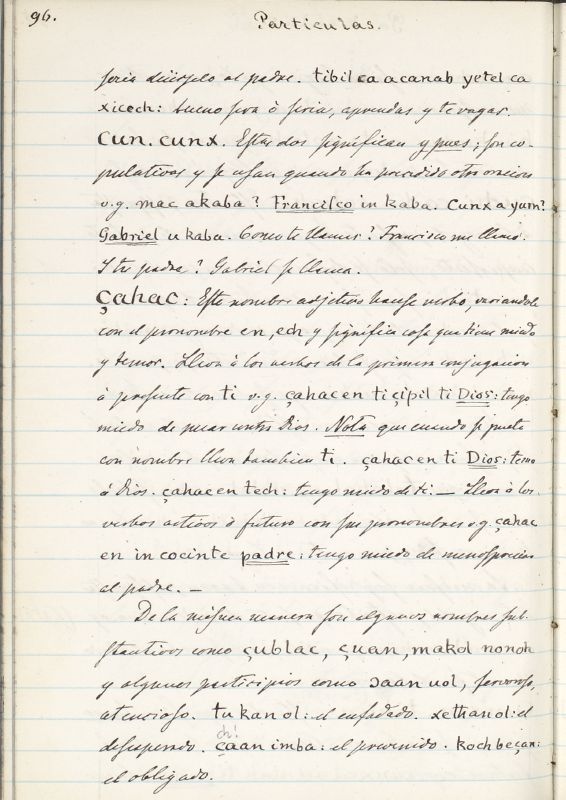 96.
Particulas.
seria dicirselo al padre. tibil ca a canab yetel ca
xicech: bueno sera ò seria, aprendas y te vayas.
Cun. cunx. Estas dos significan y pues; son co-
pulativas y se usan quando ha precedido otra oracion
v.g. mac a kaba? Francisco in kaba. Cunx a yum?
Gabriel u kaba. Como te llamas? Francisco me llamo.
Y tu padre? Gabriel se llama.
Çahac: Este nombre adjetivo hacese verbo, variandole
con el pronombre en, ech y significa cosa que tiene miedo
y temor. Lleva à los verbos de la primera conjugacion
à presente con ti v.g. çahacen ti çipil ti Dios: tengo
miedo de pecar contra Dios. Nota que cuando se junta
con nombre lleva tambien ti. çahacen ti Dios: temo
à Dios. çahacen tech: tengo miedo de ti: — Lleva à los
verbos activos à futuro con sus pronombres v.g. çahac
en in cocinte padre: tengo miedo de menospreciar
al padre. —
De la misma manera son algunos nombres sub-
stantivos como çublac, çuan, makol nonoh
y algunos participios como ɔaan uol, fervoroso,
atencioso. tukanol: el enfadado. xethanol: el
ch!
desesperado. çaan imba: el prevenido. kochbeçan:
el obligado.